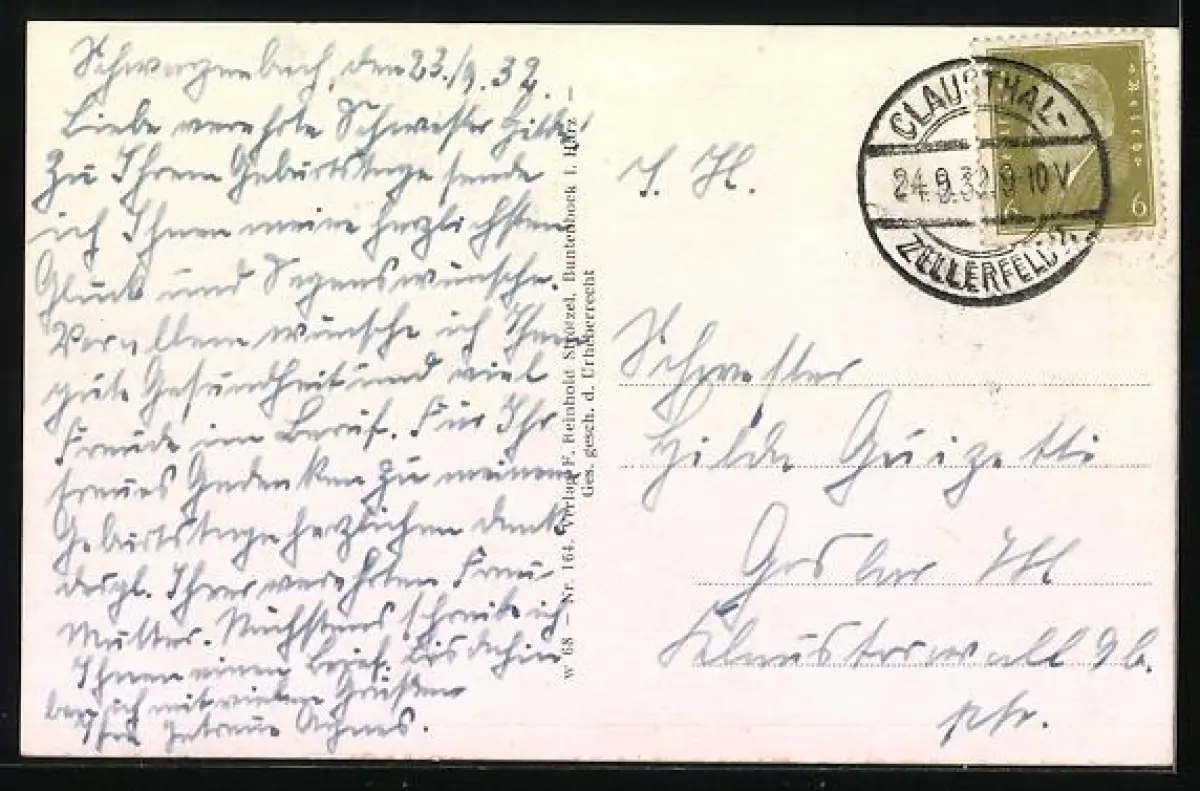 Schwarzenbach, den 23./9.32.
Liebe verehrte Schwester Hilde!
Zu Ihrem Geburtstage sende
ich Ihnen meine herzlichsten
Glück und Segenswünsche.
Vor allem wünsche ich Ihnen
gute Gesundheit und viel
Freude im Beruf. Für Ihr
treues Gedenken zu meinem
Geburtstage herzlichen Dank
desgl. Ihrer verehrten Frau
Mutter. Nächstens schreibe ich
Ihnen einen Brief. Bis dahin
bin ich mit vielen Grüßen
Ihre getreue Agnes.
W 68 – Nr. 164, Verlag F. Reinhold Strötzel, Buntenbock i. Harz –
Ges. gesch. d. Urheberrecht
CLAUSTHAL-
24.9.32.9-10 V
ZELLERFELD 1.
6 6
Schwester
Hilde Guizetti
Goslar
9b.
ptr.